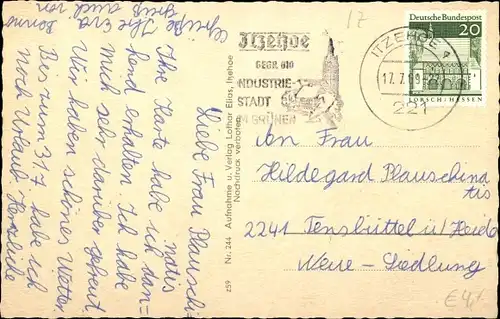 Liebe Frau Plauschi-
natis
Ihre Karte habe ich dan-
kend erhalten. Ich habe
mich sehr darüber gefreut
Wir haben schönes Wetter
Bis zum 31.7 habe ich
noch Urlaub. Herzliche
Grüße Ihre Eva
Gruß auch von
Itzehoe
GEGR. 810
INDUSTRIE-
STADT
IM GRÜNEN
ITZEHOE
17.7.69
221
Deutsche Bundespost
20
LORSCH/HESSEN
17
259 Nr. 244 Aufnahme u. Verlag Lothar Elias, Itzehoe
Nachdruck verboten
An Frau
Hildegard Plauschina
tis
2241 Tensbüttel ü/Heide
Neue-Siedlung